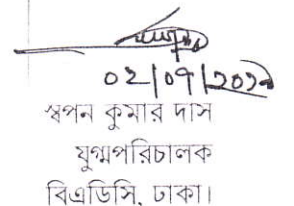 ০২|০৭|২০১৯
স্বপন কুমার দাস
যুগ্মপরিচালক
বিএডিসি, ঢাকা।